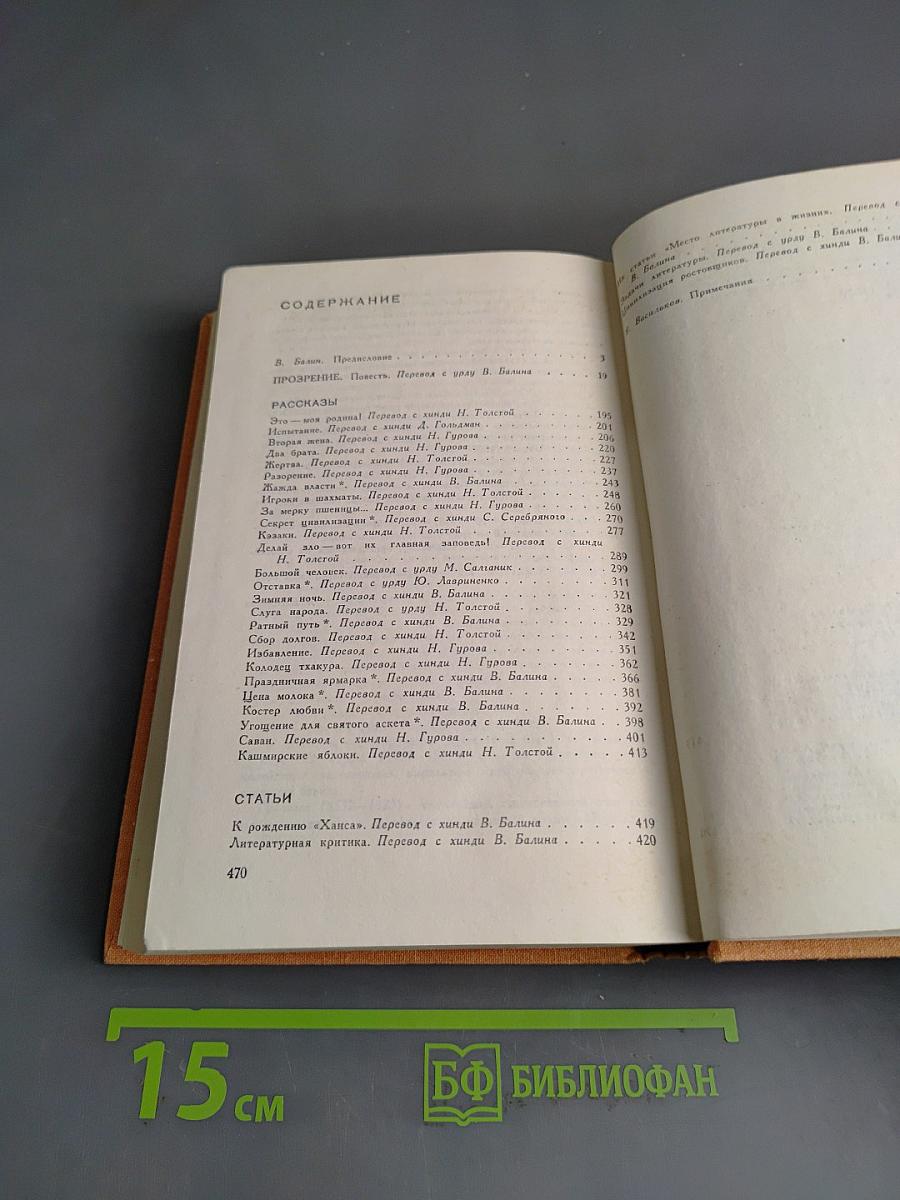 СОДЕРЖАНИЕ
В. Балин. Предисловие . . . . . . . . . . . . . . . 3
ПРОЗРЕНИЕ. Повесть. Перевод с урду В. Балина . . . . 19
РАССКАЗЫ
Это — моя родина! Перевод с хинди Н. Толстой . . . . . . 195
Испытание. Перевод с хинди Д. Гольдман . . . . . . . . 201
Вторая жена. Перевод с хинди Н. Гурова . . . . . . . . 206
Два брата. Перевод с хинди Н. Гурова . . . . . . . . . 220
Жертва. Перевод с хинди Н. Толстой . . . . . . . . . . 227
Разорение. Перевод с хинди Н. Гурова . . . . . . . . . 237
Жажда власти *. Перевод с хинди В. Балина . . . . . . . 243
Игроки в шахматы. Перевод с хинди Н. Толстой . . . . . . 248
За мерку пшеницы... Перевод с хинди Н. Гурова . . . . . . 260
Секрет цивилизации *. Перевод с хинди С. Серебряного . . . 270
Кэзаки. Перевод с хинди Н. Толстой . . . . . . . . . . 277
Делай зло — вот их главная заповедь! Перевод с хинди
Н. Толстой . . . . . . . . . . . . . . . . . . 289
Большой человек. Перевод с урду М. Салганик . . . . . . . 299
Отставка *. Перевод с урду Ю. Лавриненко . . . . . . . . 311
Зимняя ночь. Перевод с хинди В. Балина . . . . . . . . . 321
Слуга народа. Перевод с урду Н. Толстой . . . . . . . . . 328
Ратный путь *. Перевод с хинди В. Балина . . . . . . . . 329
Сбор долгов. Перевод с хинди Н. Толстой . . . . . . . . 342
Избавление. Перевод с хинди Н. Гурова . . . . . . . . . 351
Колодец тхакура. Перевод с хинди Н. Гурова . . . . . . . 362
Праздничная ярмарка *. Перевод с хинди В. Балина . . . . . 366
Цена молока *. Перевод с хинди В. Балина . . . . . . . . 381
Костер любви *. Перевод с хинди В. Балина . . . . . . . . 392
Угощение для святого аскета *. Перевод с хинди В. Балина . . 398
Саван. Перевод с хинди Н. Гурова . . . . . . . . . . . 401
Кашмирские яблоки. Перевод с хинди Н. Толстой . . . . . 413
СТАТЬИ
К рождению «Ханса». Перевод с хинди В. Балина . . . . . . 419
Литературная критика. Перевод с хинди В. Балина . . . . . 420
470
статьи «Место литературы в жизни». Перевод с
В. Балина . . . . . . . . . . .
Задачи литературы. Перевод с урду В. Балина . .
Цивилизация ростовщиков. Перевод с хинди В.
Васильков. Примечания . . . . . . . .
15 см
БФ БИБЛИОФАН